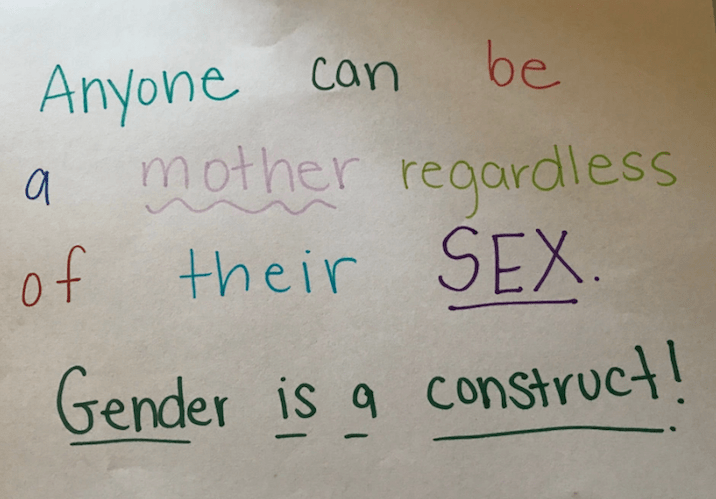 Anyone can be
a mother regardless
of their SEX.
Gender is a construct!